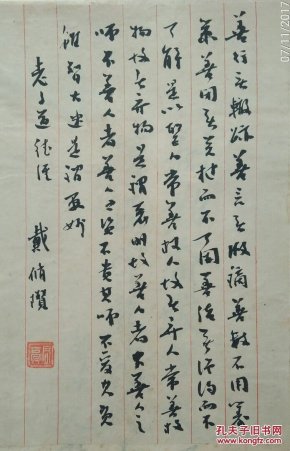 善行无辙跡善言无瑕谪善数不用筹
策善闭无关楗而不可开善结无绳约而不
可解是以圣人常善救人故无弃人常善救
物故无弃物是谓袭明故善人者不善人之
师不善人者善人之资不贵其师不爱其资
虽智大迷是谓要妙
老子道德经 戴脩瓒
07/11/2017